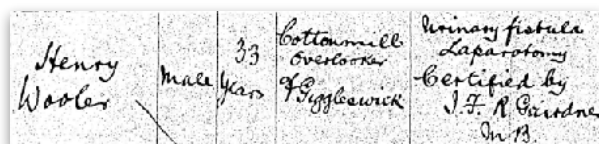 Henry
Wooler
Male
33
Years
Cottonmill
Overlooker
of Giggleswick
Urinary fistula
Laparotomy
Certified by
J. F. R Gairdner
M B.